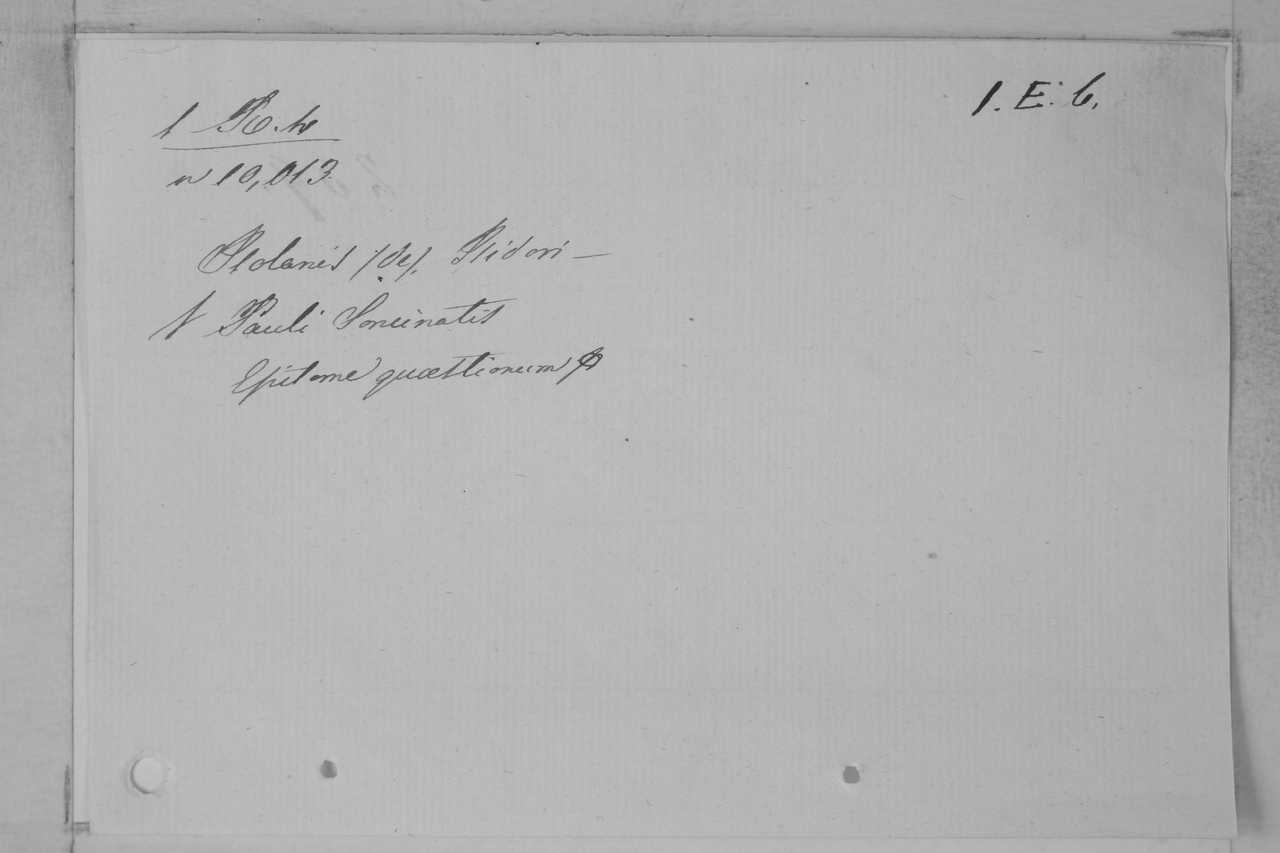 1 R. h
n 10,013
1. E. 6.
Isolanis (de). Isidori —
Pauli Soncinatis
Epitome quæstionum